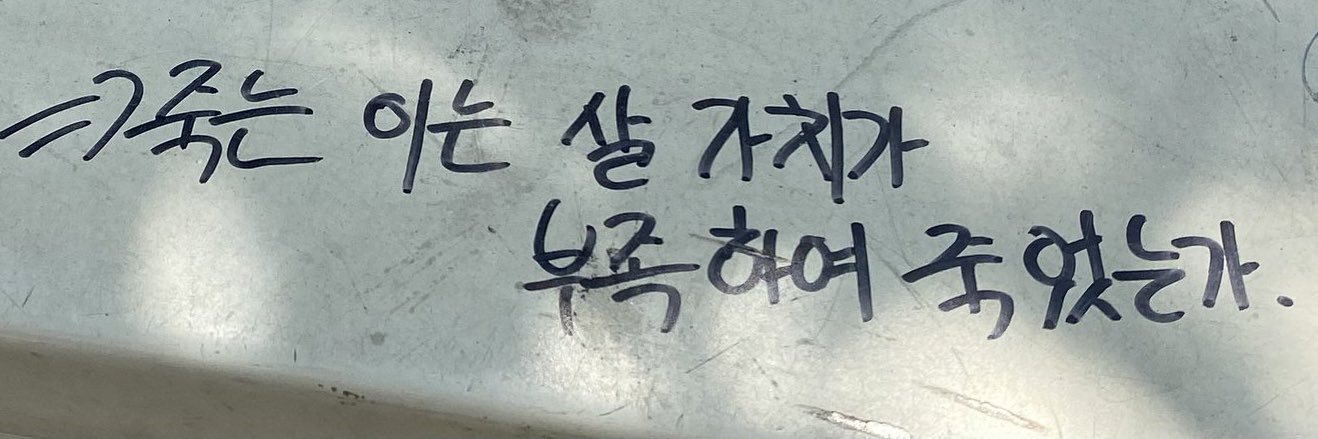 ⇒ 죽는 이는 살 가치가
부족하여 죽었는가.